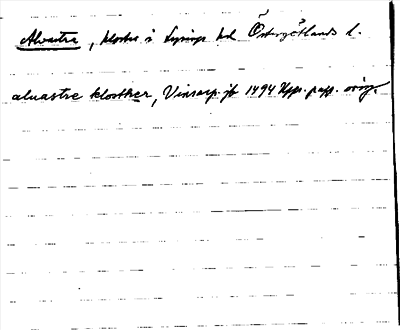 Alvastra, kloster i Lysings hd Östergötlands l.
aluastre klostker, Vinsarp. jb 1494 Upps. papp. orig.